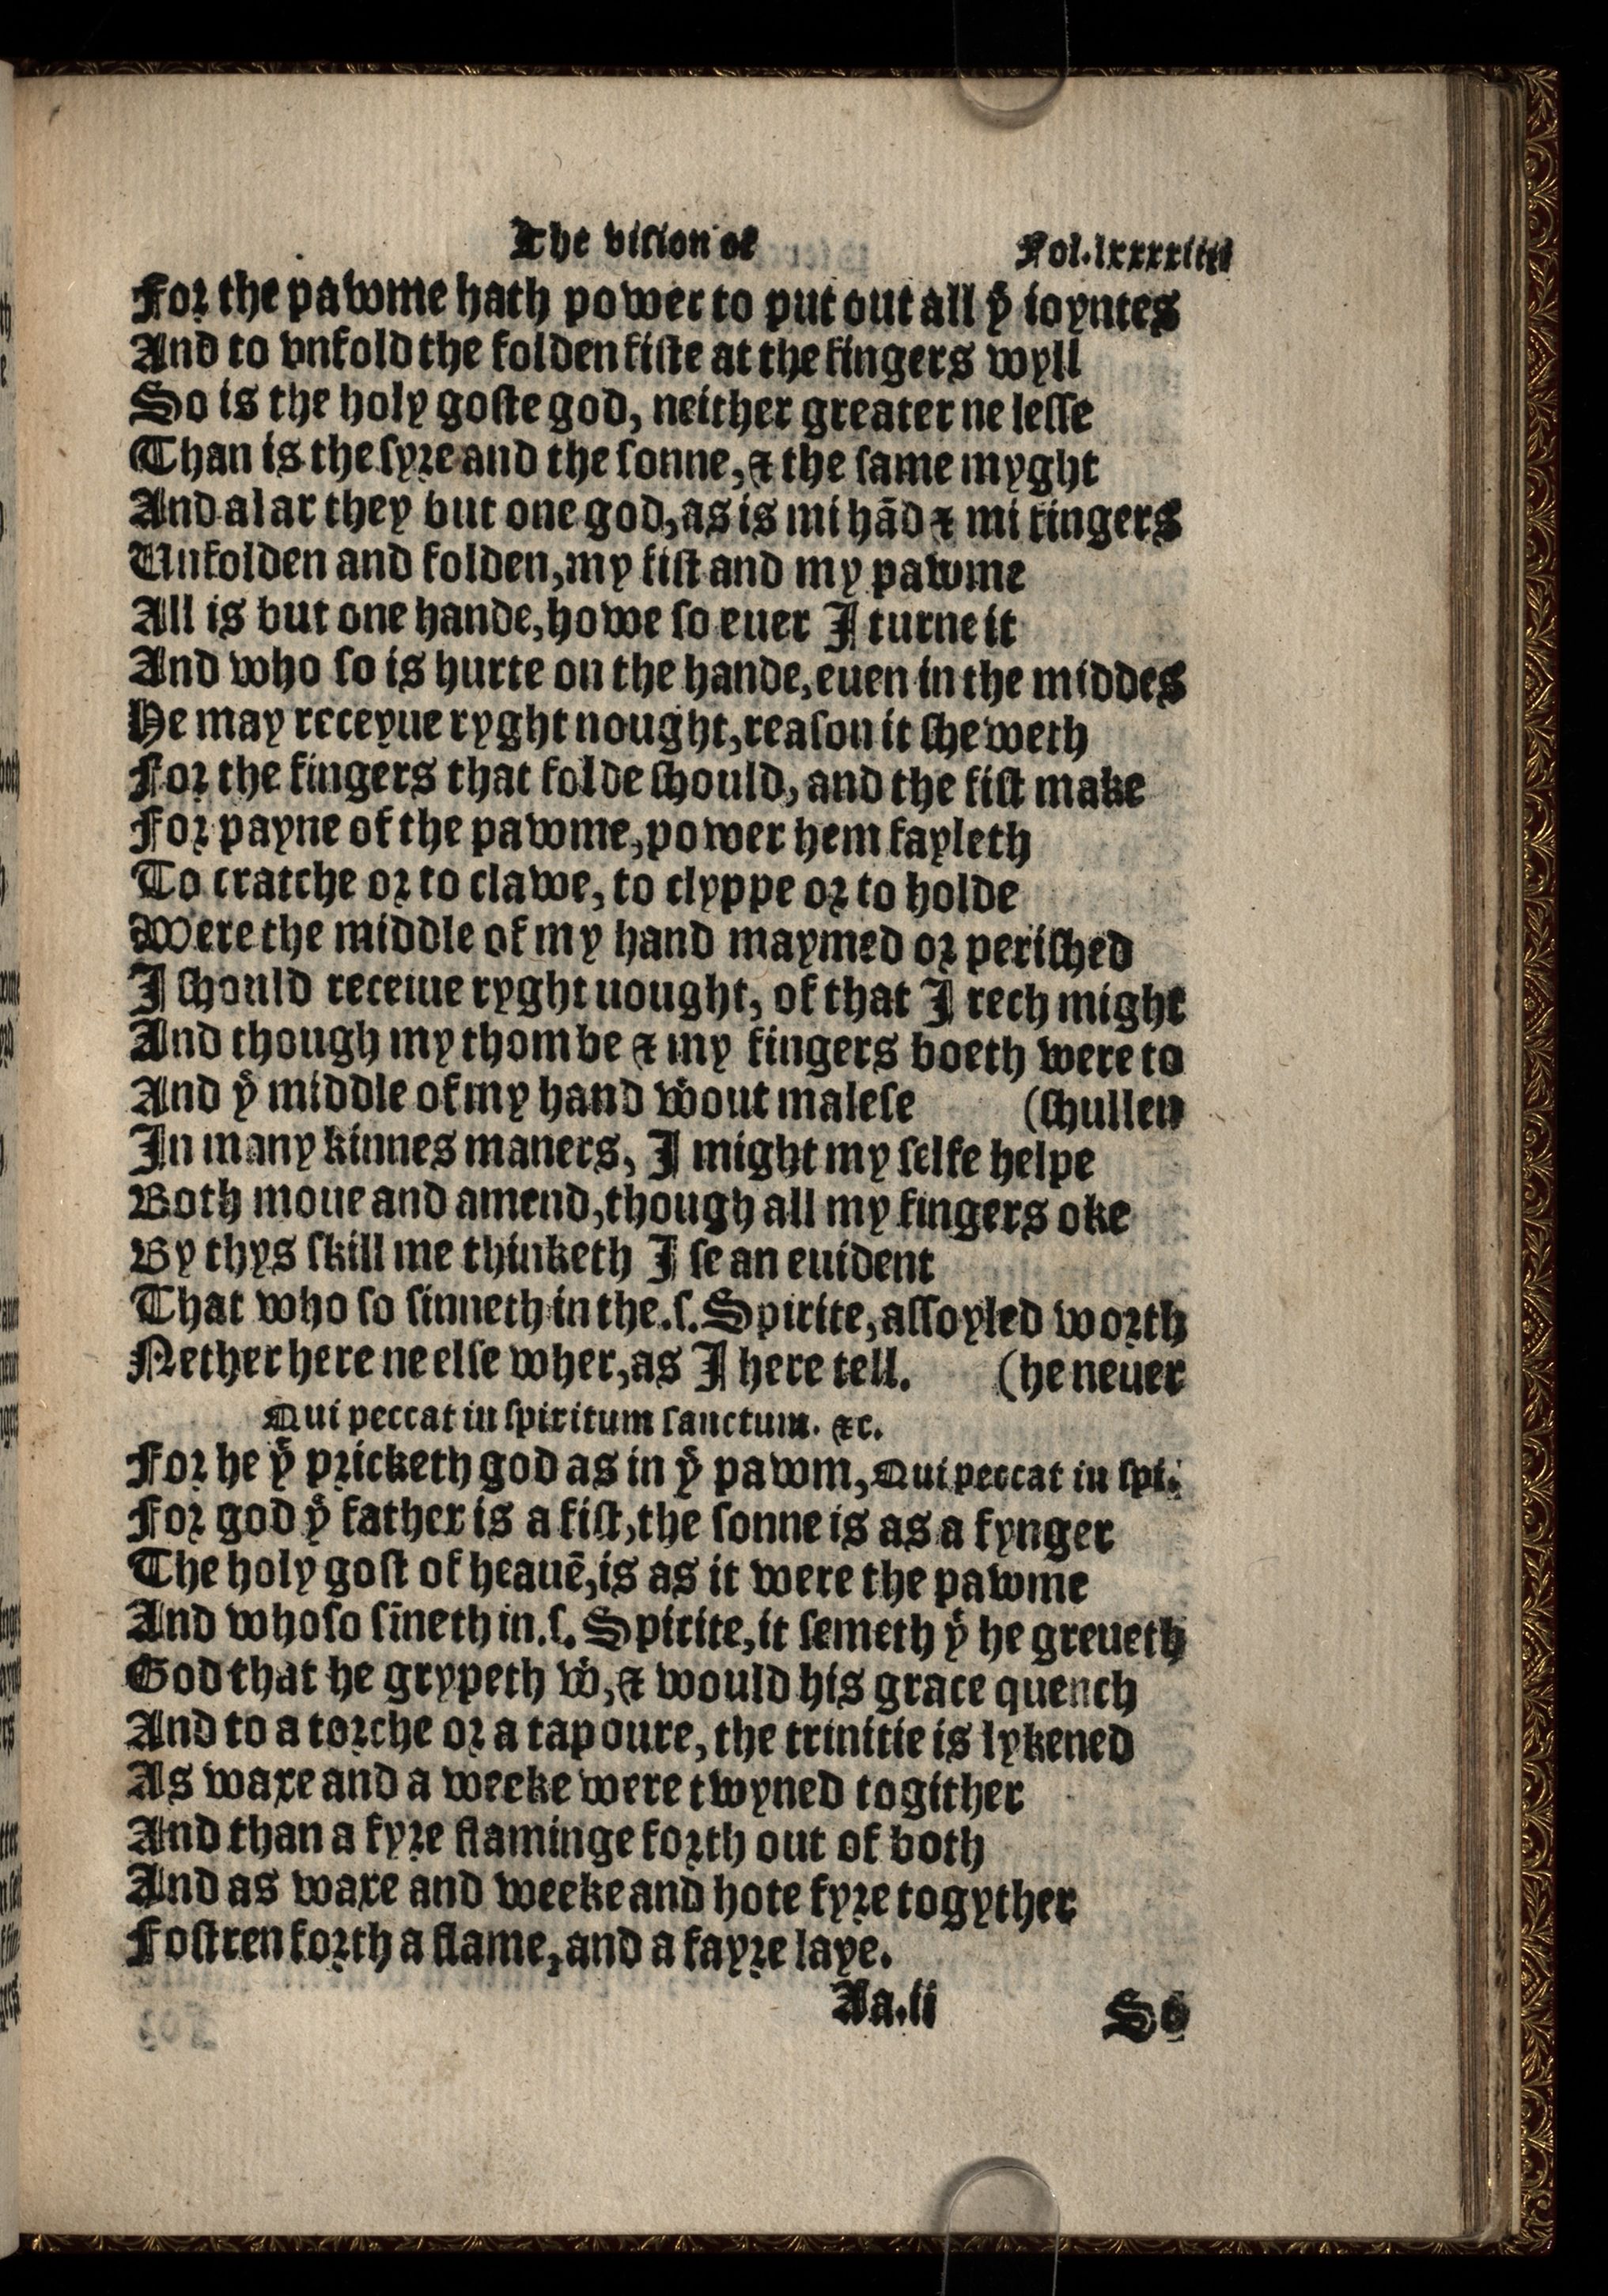 The vision of Fol.lxxxxiiii
For the pawme hath power to put out all yͤ ioyntes
And to vnfold the folden fiste at the fingers wyll
So is the holy goste god, neither greater ne lesse
Than is the syre and the sonne, & the same myght
And al ar they but one god, as is mi hād & mi fingers
Unfolden and folden, my fist and my pawme
All is but one hande, howe so euer I turne it
And who so is hurte on the hande, euen in the middes
He may receyue ryght nought, reason it sheweth
For the fingers that folde should, and the fist make
For payne of the pawme, power hem fayleth
To cratche or to clawe, to clyppe or to holde
Were the middle of my hand maymed or perished
I should receiue ryght nought, of that I rech might
And though my thombe & my fingers boeth were to
And yͤ middle of my hand wͭout malese (shullen
In many kinnes maners, I might my selfe helpe
Both moue and amend, though all my fingers oke
By thys skill me thinketh I se an euident
That who so sinneth in the .s. Spirite, assoyled worth
Nether here ne else wher, as I here tell. (he neuer
Qui peccat in spiritum sanctum. &c.
For he yͭ pricketh god as in yͤ pawm, Qui peccat in spi.
For god yͤ father is a fist, the sonne is as a fynger
The holy gost of heauē, is as it were the pawme
And whoso sīneth in .s. Spirite, it semeth yͭ he greueth
God that he grypeth wͭ, & would his grace quench
And to a torche or a tapoure, the trinitie is lykened
As waxe and a weeke were twyned togither
And than a fyre flaminge forth out of both
And as waxe and weeke and hote fyre togyther
Fostren forth a flame, and a fayre laye.
Aa.ii So